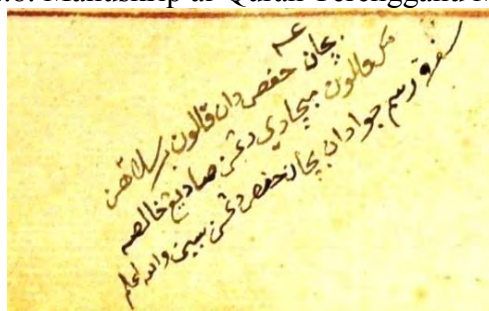 Manuskrip al-Quran Terengganu
بچان حفص دان قالون برسلاهن
مک قالون مبچادي دڠن صاد يڠ خالصه
سفرة رسم جوا دان بچان حفص دڠن سين والله اعلم